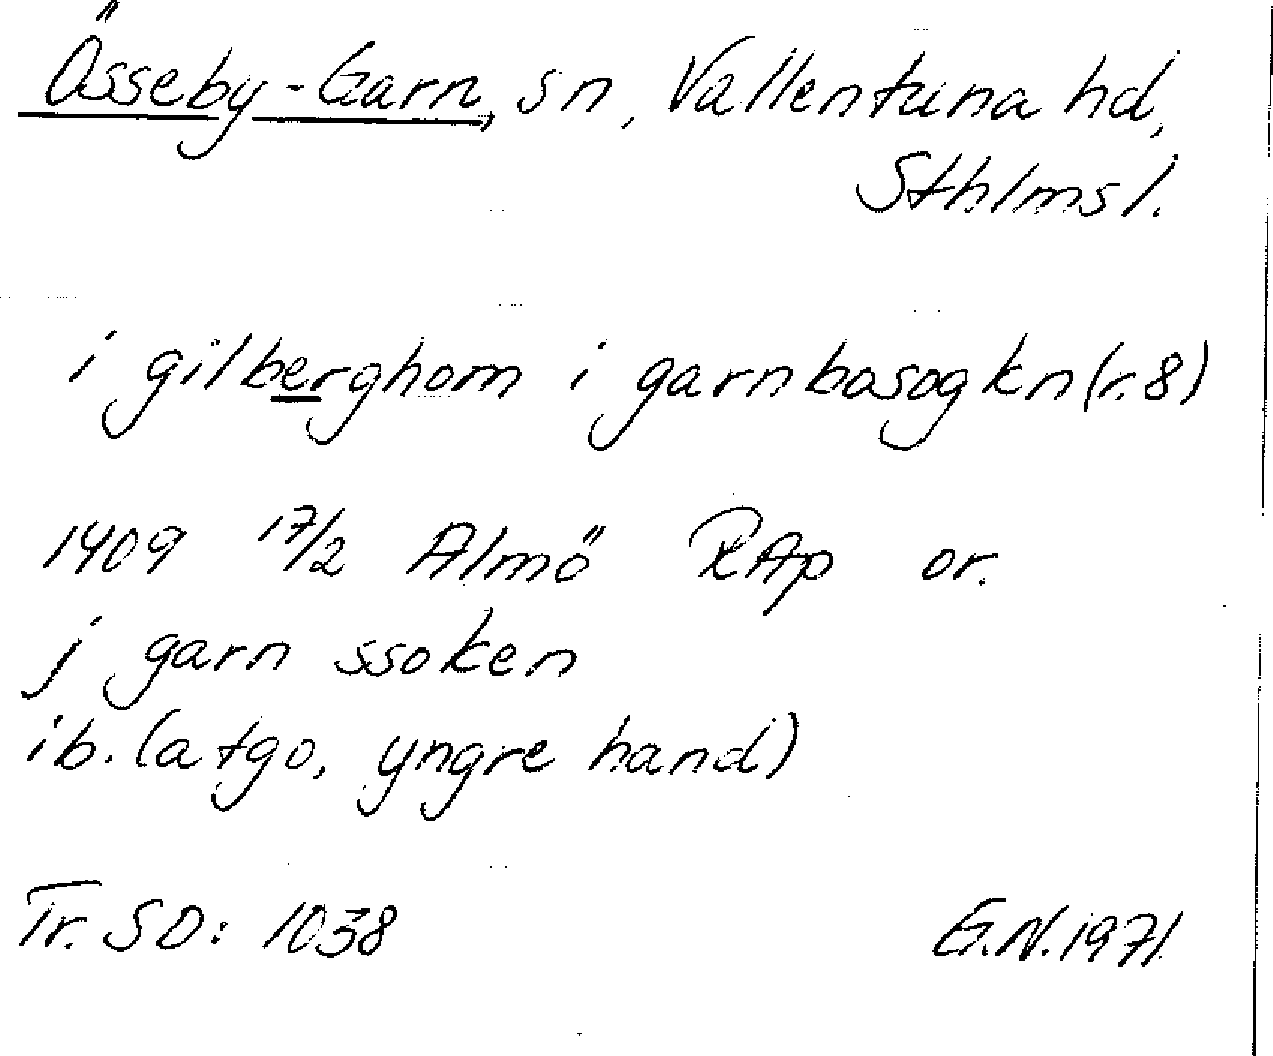 Össeby-Garn, sn, Vallentuna hd,
Sthlms l.
i gilberghom i garnbosogkn (r. 8)
1409 17/2 Almö RAp or.
j garn ssoken
ib. (atgo, yngre hand)
Tr. SD: 1038
G.N. 1971